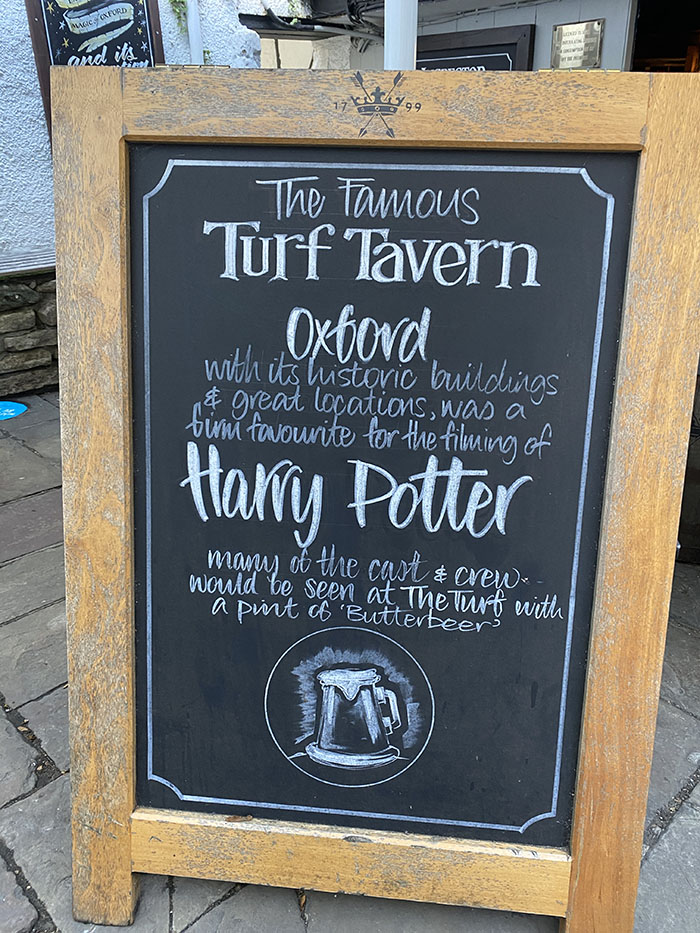 MAGIC of OXFORD
and its
17 99
The Famous
Turf Tavern
Oxford
with its historic buildings
& great locations, was a
firm favourite for the filming of
Harry Potter
many of the cast & crew
would be seen at The Turf with
a pint of 'Butterbeer'